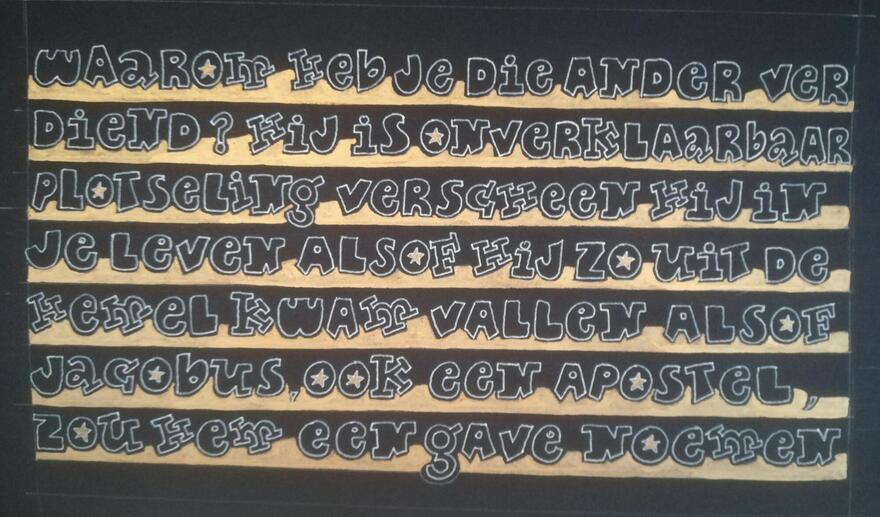 Waarom heb je die ander ver
diend? Hij is onverklaarbaar
plotseling verscheen hij in
je leven alsof hij zo uit de
hemel kwam vallen alsof
Jacobus, ook een apostel,
zou hem een gave noemen